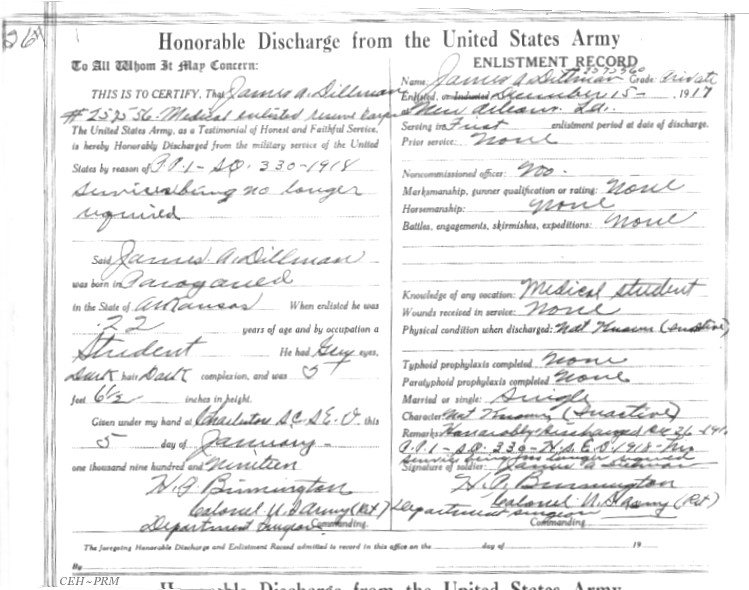 264
Honorable Discharge from the United States Army
To All Whom It May Concern:
THIS IS TO CERTIFY, That James A. Dillman
# 257556. Medical enlisted reserve Corps
The United States Army, as a Testimonial of Honest and Faithful Service,
is hereby Honorably Discharged from the military service of the United
States by reason of P.P. 1 - S.O. 330 - 1918
Services being no longer
required
Said James A. Dillman
was born in
in the State of Arkansas When enlisted he was
22 years of age and by occupation a
Student He had Grey eyes,
Dark hair, Dark complexion, and was 5
feet 6½ inches in height.
Given under my hand at Charleston S.C. S.E. D. this
5 day of January
one thousand nine hundred and Nineteen
Colonel U.S. Army (Ret)
Department Surgeon Commanding.
ENLISTMENT RECORD
Name: James A. Dillman Grade: Private
Enlisted, or Inducted December 15 - , 1917
New Orleans. La.
Serving in First enlistment period at date of discharge.
Prior service: None
Noncommissioned officer: No.
Marksmanship, gunner qualification or rating: None
Horsemanship: None
Battles, engagements, skirmishes, expeditions: None
Knowledge of any vocation: Medical student
Wounds received in service: None
Physical condition when discharged: Not Known (Inactive)
Typhoid prophylaxis completed None
Paratyphoid prophylaxis completed None
Married or single: Single
Character: Not Known (Inactive)
Remarks: Honorably Discharged
P.P. 1 - S.O. 330 - 1918
Signature of soldier: James A. Dillman
Colonel U.S. Army (Ret)
Department Surgeon
Commanding.
The foregoing Honorable Discharge and Enlistment Record admitted to record in this office on the day of 19
By
CEH~PRM
Honorable Discharge from the United States Army